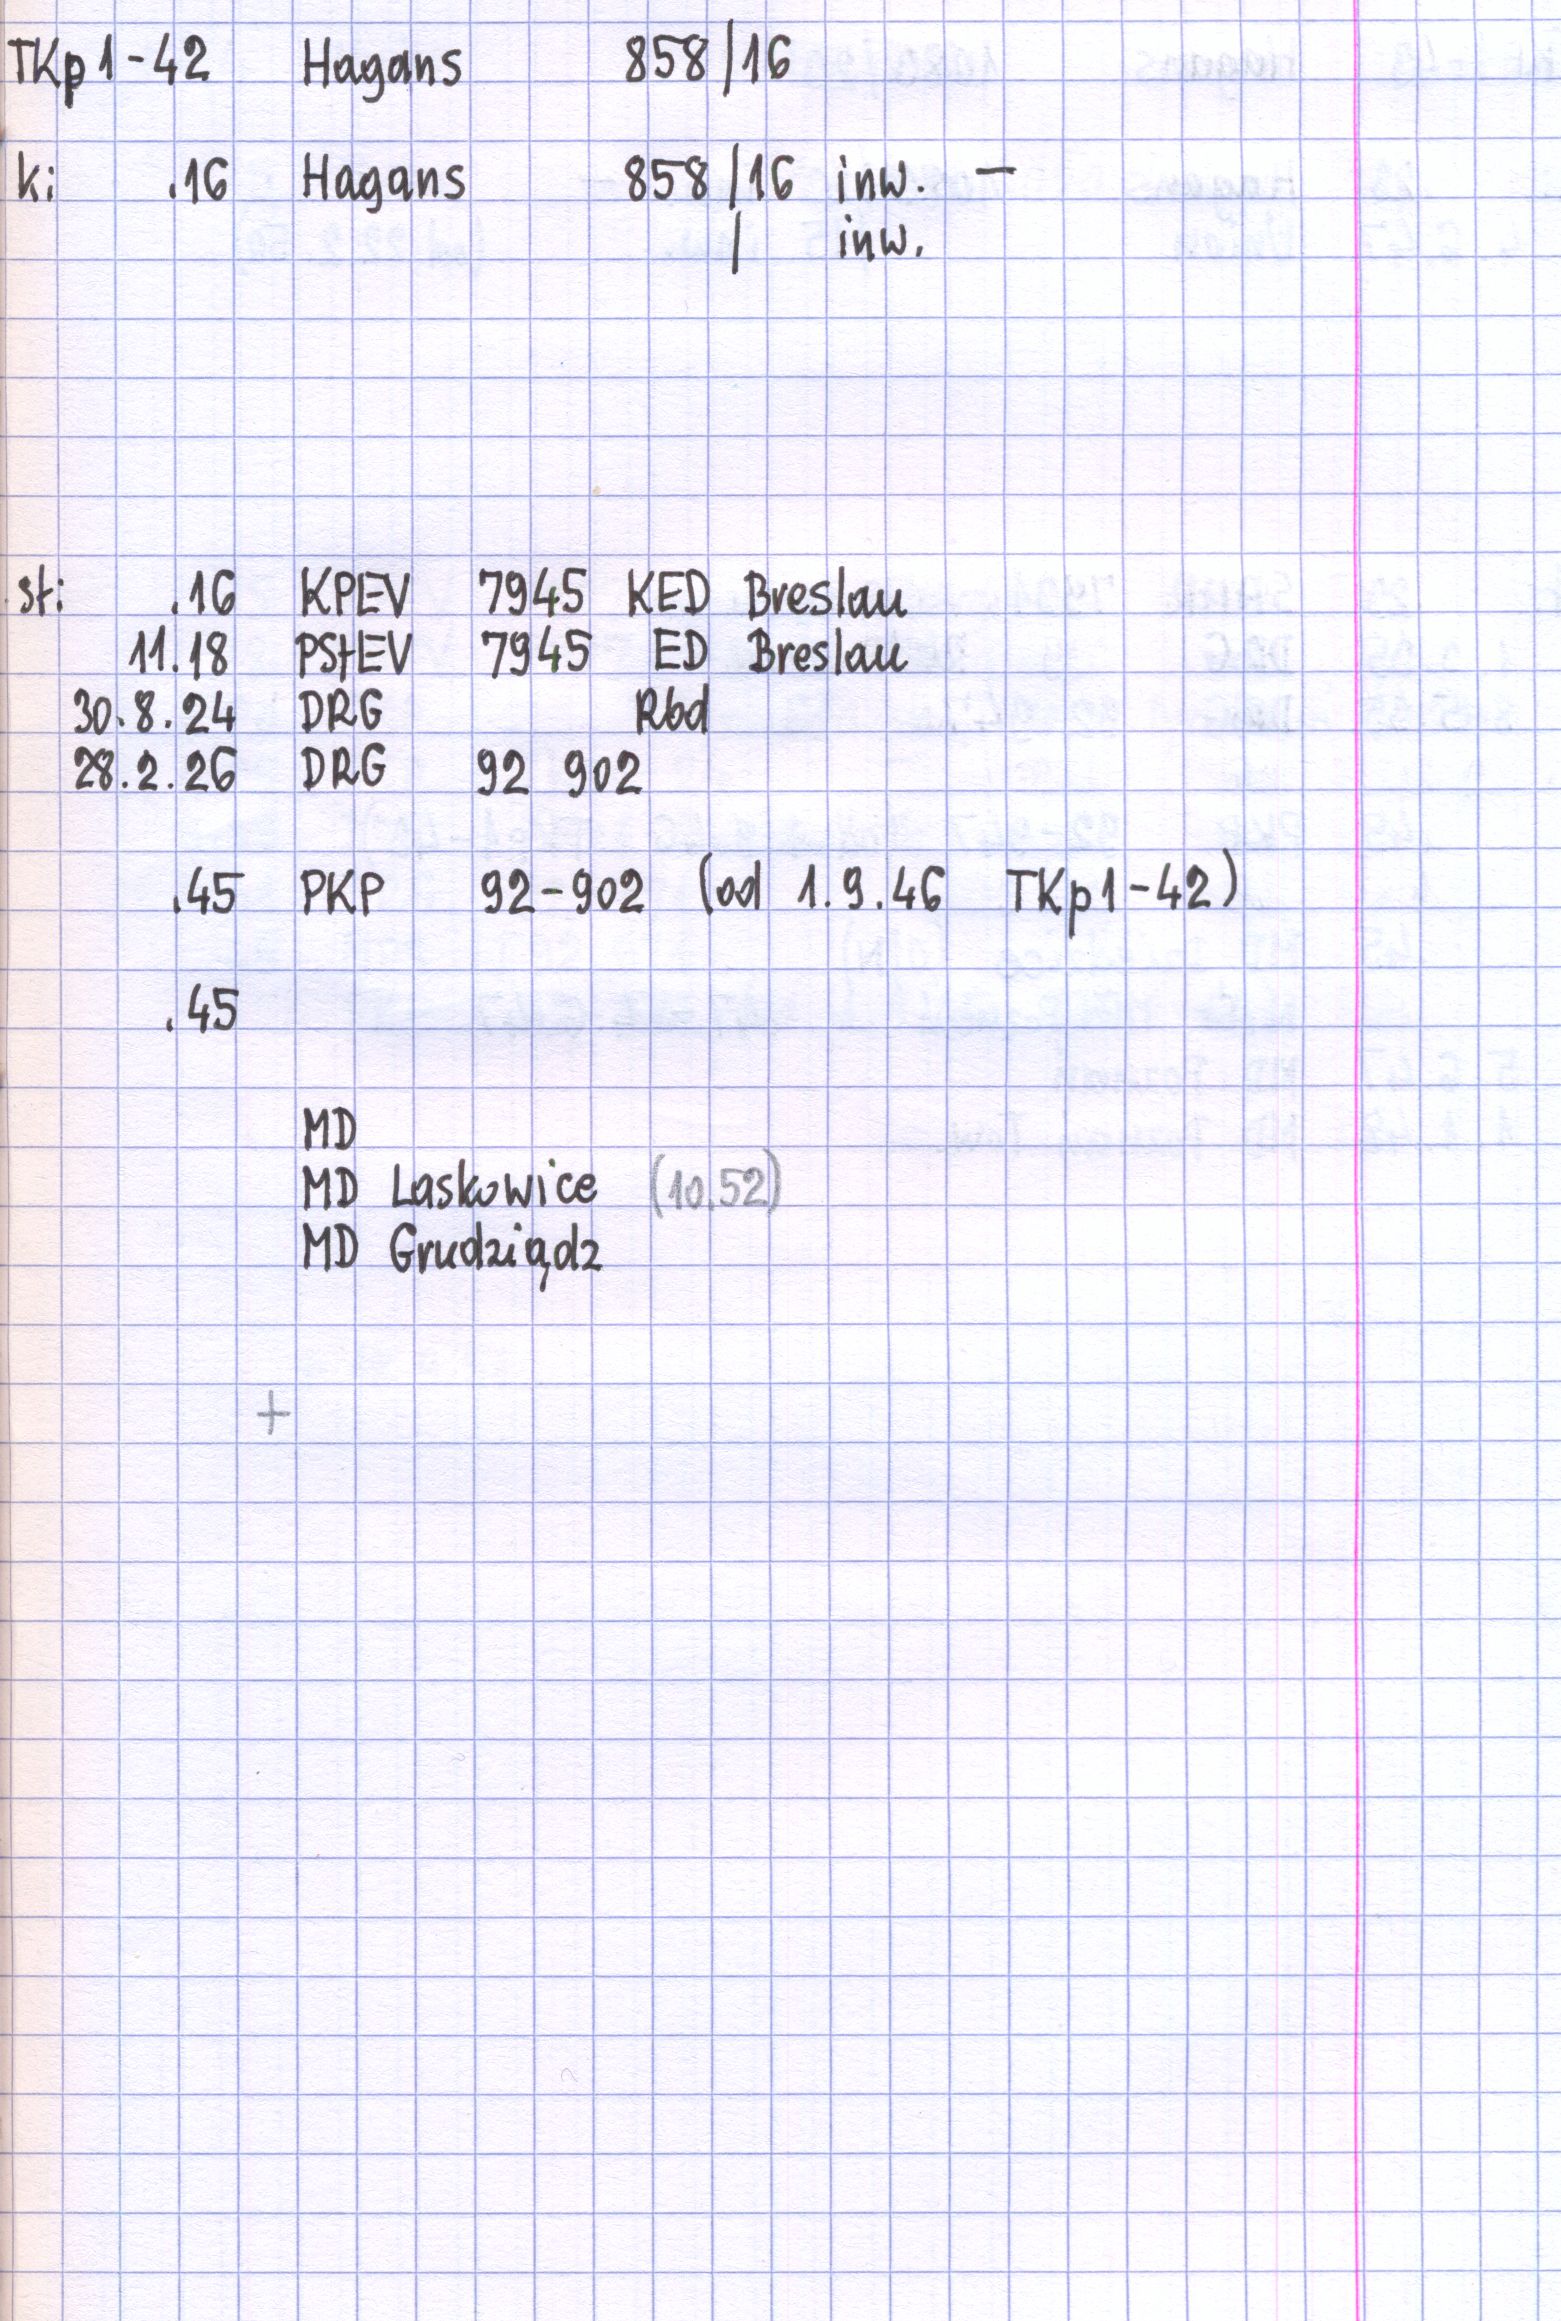 TKp1-42 Hagans 858/16
ki .16 Hagans 858/16 inw. -
/ inw.
st: .16 KPEV 7945 KED Breslau
11.18 PStEV 7945 ED Breslau
30.8.24 DRG Rbd
28.2.26 DRG 92 902
.45 PKP 92-902 (od 1.9.46 TKp1-42)
.45
MD
MD Laskowice (10.52)
MD Grudziądz
+